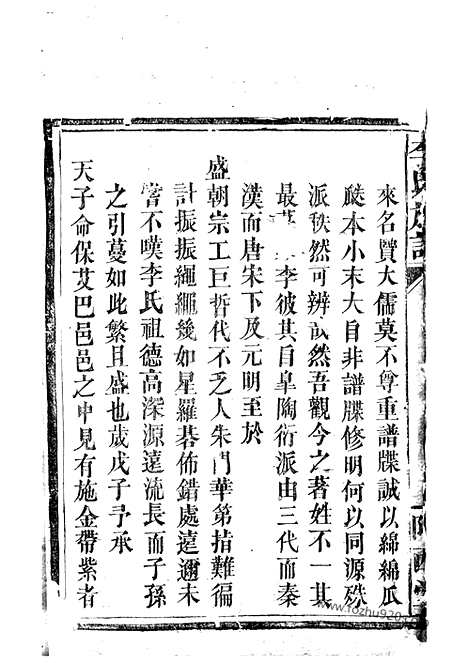 來名賢大儒莫不尊重譜牒誠以綿綿瓜
瓞本小末大自非譜牒修明何以同源殊
派秩然可辨哉然吾觀今之著姓不一其
最 李彼其自皐陶衍派由三代而秦
漢而唐宋下及元明至於
盛朝宗工巨哲代不乏人朱門華第指難徧
計振振繩繩幾如星羅碁佈錯處遠邇未
嘗不嘆李氏祖德高深源遠流長而子孫
之引蔓如此繁且盛也歲戊子予承
天子命保艾巴邑邑之中見有施金帶紫者
李氏族譜
www.fozhu920